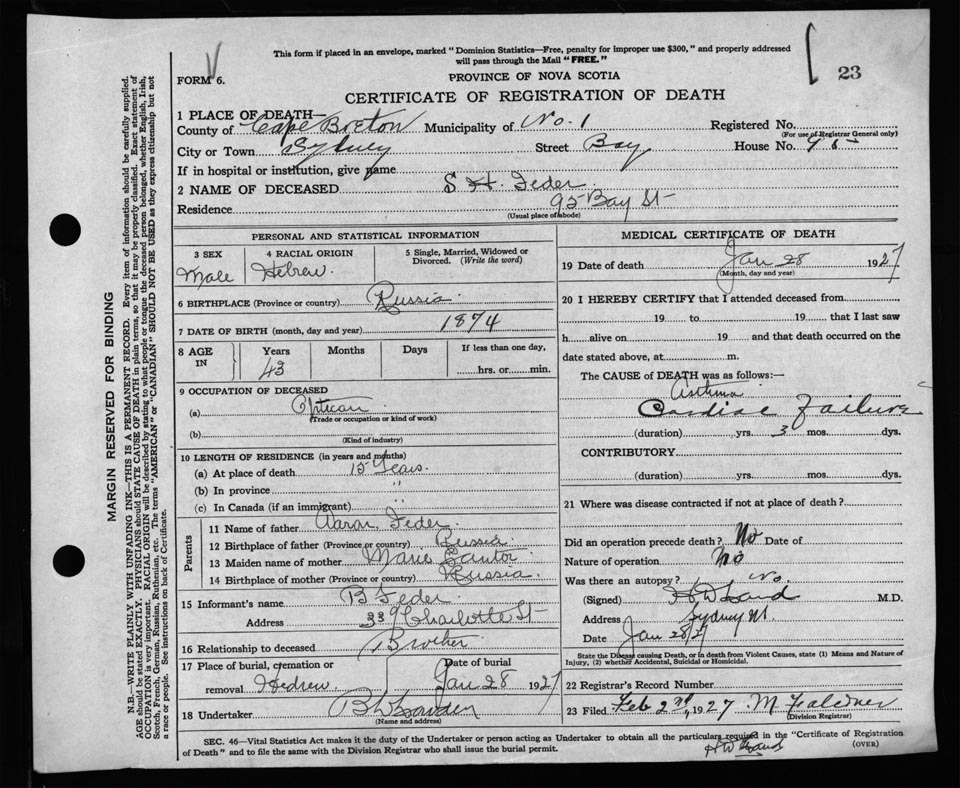 This form if placed in an envelope, marked "Dominion Statistics—Free, penalty for improper use $300," and properly addressed
will pass through the Mail "FREE."
FORM 6.
23
PROVINCE OF NOVA SCOTIA
CERTIFICATE OF REGISTRATION OF DEATH
1 PLACE OF DEATH—
County of Cape Breton Municipality of No. 1 Registered No.
(For use of Registrar General only)
City or Town Sydney Street Bay House No. 95
If in hospital or institution, give name
2 NAME OF DECEASED S. H. Feder
Residence 95 Bay St
(Usual place of abode)
PERSONAL AND STATISTICAL INFORMATION
3 SEX 4 RACIAL ORIGIN 5 Single, Married, Widowed or
Divorced. (Write the word)
Male Hebrew.
6 BIRTHPLACE (Province or country) Russia.
7 DATE OF BIRTH (month, day and year) 1874
8 AGE IN Years Months Days If less than one day,
43 hrs. or min.
9 OCCUPATION OF DECEASED
(a) Optican
(Trade or occupation or kind of work)
(b)
(Kind of industry)
10 LENGTH OF RESIDENCE (in years and months)
(a) At place of death 15 Years.
(b) In province "
(c) In Canada (if an immigrant) "
Parents
11 Name of father Aaron Feder.
12 Birthplace of father (Province or country) Russia
13 Maiden name of mother Marie Cantor
14 Birthplace of mother (Province or country) Russia.
15 Informant's name B Feder.
Address 339 Charlotte St
16 Relationship to deceased Brother
17 Place of burial, cremation or Date of burial
removal Hedrew. Jan 28 1927
18 Undertaker
(Name and address)
MEDICAL CERTIFICATE OF DEATH
19 Date of death Jan 28 1927
(Month, day and year)
20 I HEREBY CERTIFY that I attended deceased from
19 to 19 that I last saw
h alive on 19 and that death occurred on the
date stated above, at m.
The CAUSE of DEATH was as follows:—
Asthma
Cardiac Failure
(duration) yrs. 3 mos. dys.
CONTRIBUTORY
(duration) yrs. mos. dys.
21 Where was disease contracted if not at place of death?
Did an operation precede death? No Date of
Nature of operation No
Was there an autopsy? No.
(Signed) M.D.
Address Sydney
Date Jan 28/27
State the Disease causing Death, or in death from Violent Causes, state (1) Means and Nature of
Injury, (2) whether Accidental, Suicidal or Homicidal.
22 Registrar's Record Number
23 Filed Feb 2nd, 1927 M
(Division Registrar)
SEC. 46—Vital Statistics Act makes it the duty of the Undertaker or person acting as Undertaker to obtain all the particulars required in the "Certificate of Registration
of Death" and to file the same with the Division Registrar who shall issue the burial permit.
(OVER)
MARGIN RESERVED FOR BINDING
N.B.—WRITE PLAINLY WITH UNFADING INK—THIS IS A PERMANENT RECORD. Every item of information should be carefully supplied.
AGE should be stated EXACTLY. PHYSICIANS should STATE CAUSE OF DEATH in plain terms, so that it may be properly classified. Exact statement of
OCCUPATION is very important. RACIAL ORIGIN will be described by stating to what people or tongue the deceased person belonged, whether English, Irish,
Scotch, French, German, Russian, Ruthenian, etc. The terms "AMERICAN" or "CANADIAN" SHOULD NOT BE USED as they express citizenship but not
a race or people. See instructions on back of Certificate.